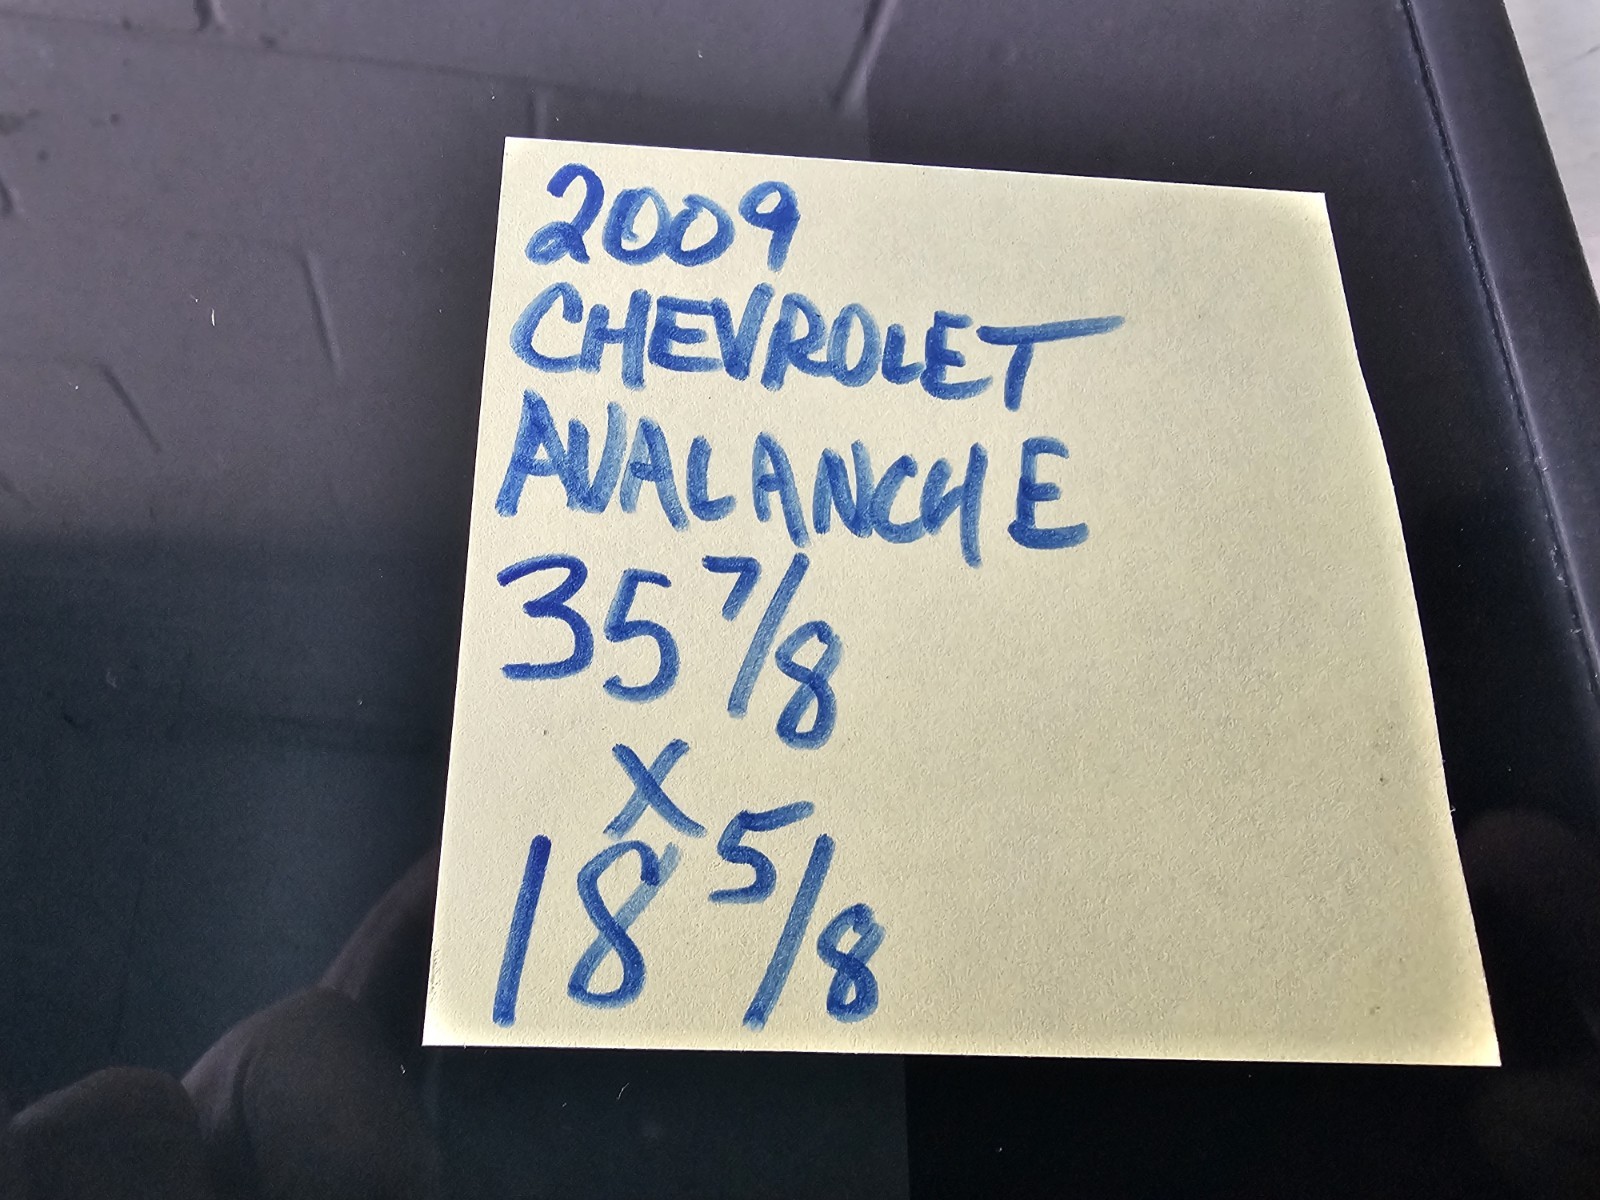 2009
CHEVROLET
AVALANCHE
35 7/8
X
18 5/8